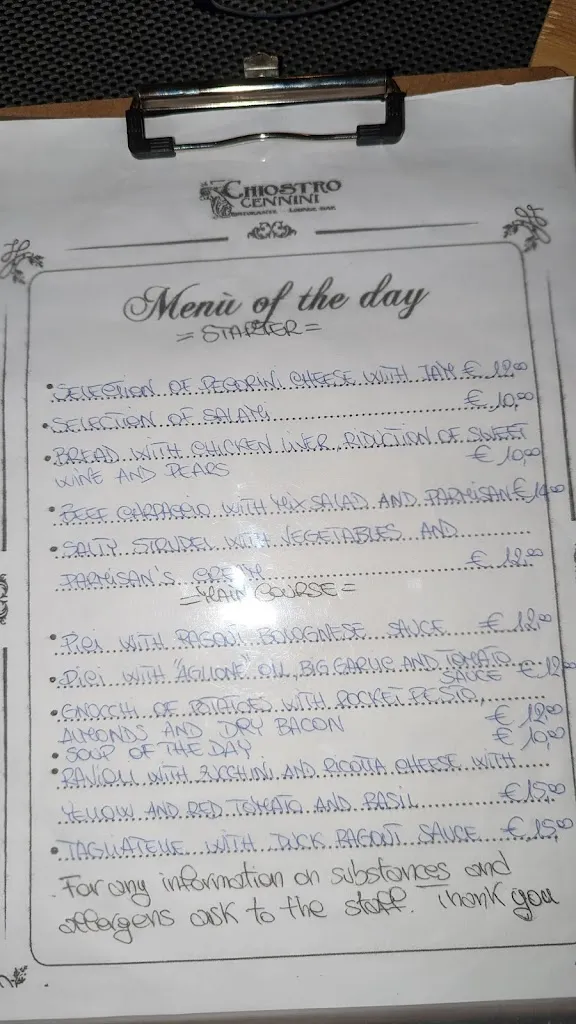 CHIOSTRO
CENNINI
RISTORANTE LOUNGE BAR
Menù of the day
= STARTER =
• SELECTION OF PECORINI CHEESE WITH JAM € 12,00
• SELECTION OF SALAMI € 10,00
• BREAD WITH CHICKEN LIVER, RIDUCTION OF SWEET
WINE AND PEARS € 10,00
• BEEF CARPACCIO WITH MIX SALAD AND PARMISAN € 14,00
• SALTY STRUDEL WITH VEGETABLES AND
PARMISAN'S CREAM € 12,00
= MAIN COURSE =
• PICI WITH RAGOUT BOLOGNESE SAUCE € 12,00
• PICI WITH "AGLIONE" OIL, BIG GARLIC AND TOMATO
SAUCE € 12,00
• GNOCCHI OF POTATOES WITH ROCKET PESTO,
ALMONDS AND DRY BACON € 12,00
• SOUP OF THE DAY € 10,00
• RAVIOLI WITH ZUCCHINI AND RICOTTA CHEESE WITH
YELLOW AND RED TOMATO AND BASIL € 15,00
• TAGLIATELLE WITH DUCK RAGOUT SAUCE € 15,00
. For any information on substances and
allergens ask to the staff. Thank you